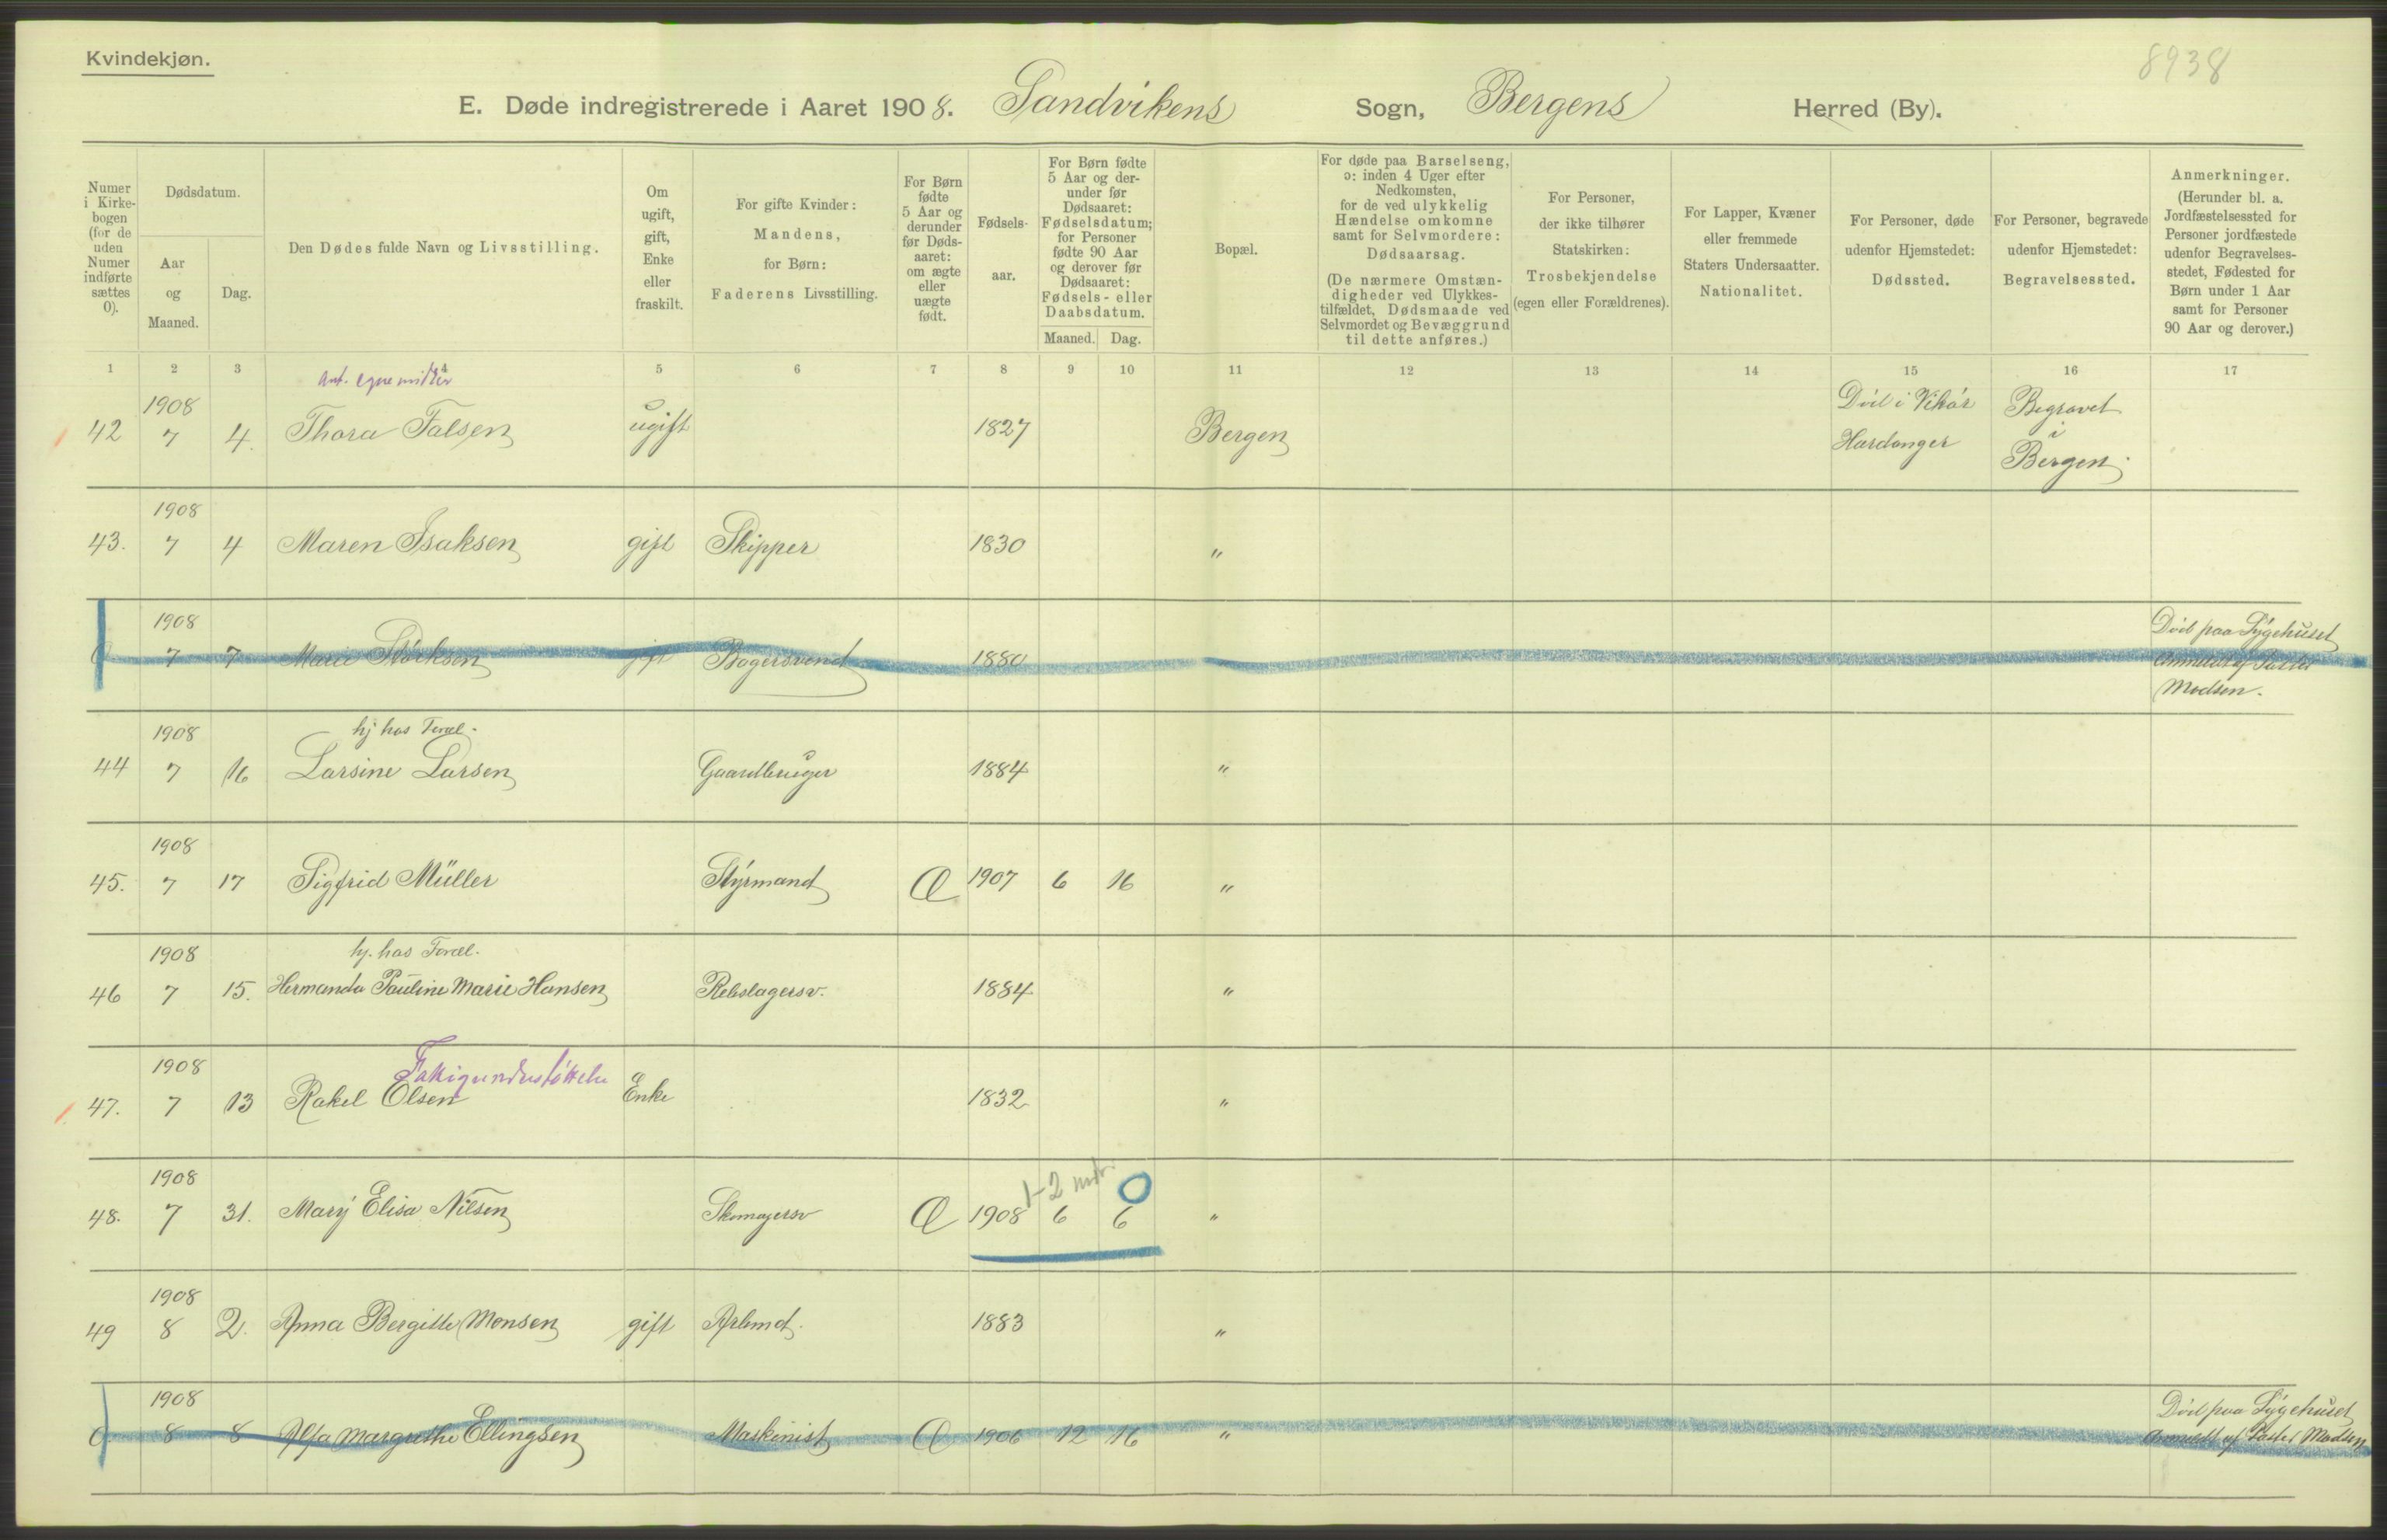 Kvindekjøn.
8938
E. Døde indregistrerede i Aaret 1908. Sandvikens Sogn, Bergens Herred (By).
Numer i Kirke-bogen (for de uden Numer indførte sættes 0).
Dødsdatum.
Aar og Maaned.
Dag.
Den Dødes fulde Navn og Livsstilling.
Om ugift, gift, Enke eller fraskilt.
For gifte Kvinder: Mandens, for Børn: Faderens Livsstilling.
For Børn fødte 5 Aar og derunder før Døds-aaret: om ægte eller uægte født.
Fødsels-aar.
For Børn fødte 5 Aar og der-under før Dødsaaret: Fødselsdatum; for Personer fødte 90 Aar og derover før Dødsaaret: Fødsels- eller Daabsdatum.
Maaned. Dag.
Bopæl.
For døde paa Barselseng, ɔ: inden 4 Uger efter Nedkomsten, for de ved ulykkelig Hændelse omkomne samt for Selvmordere: Dødsaarsag. (De nærmere Omstæn-digheder ved Ulykkes-tilfældet, Dødsmaade ved Selvmordet og Bevæggrund til dette anføres.)
For Personer, der ikke tilhører Statskirken: Trosbekjendelse (egen eller Forældrenes).
For Lapper, Kvæner eller fremmede Staters Undersaatter. Nationalitet.
For Personer, døde udenfor Hjemstedet: Dødssted.
For Personer, begravede udenfor Hjemstedet: Begravelsessted.
Anmerkninger. (Herunder bl. a. Jordfæstelsessted for Personer jordfæstede udenfor Begravelses-stedet, Fødested for Børn under 1 Aar samt for Personer 90 Aar og derover.)
1 2 3 5 6 7 8 9 10 11 12 13 14 15 16 17
egne midler
42 1908 7 4. Thora Falsen ugift 1827 Bergen Död i Vikör Hardanger Begravet i Bergen.
43. 1908 7 4 Maren Isaksen gift Skipper 1830 "
0 1908 7 7 Marie gift Bagersvend 1880 Död paa Sygehuset Anmeldt af Madsen.
hj hos Foræl.
44 1908 7 16 Larsine Larsen Gaardbruger 1884 "
45. 1908 7 17 Sigfrid Müller Styrmand Æ 1907 6 16 "
hj. hos Foræl.
46 1908 7 15. Hermanda Pauline Marie Hansen Rebslagersv. 1884 "
Fattigunderstöttelse
47. 1908 7 13 Rakel Olsen Enke 1832 "
1-2 mdr. 0
48. 1908 7 31. Mary Elisa Nilsen Skomagersv Æ 1908 6 6 "
49 1908 8 2. Anna Bergitte Monsen gift Arbmd. 1883 "
0 1908 8 8 Margrethe Ellingsen Maskinist Æ 1906 12 16 " Död paa Sygehuset Anmeldt af Madsen